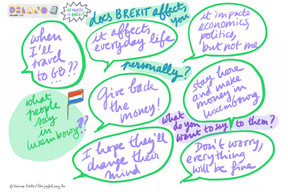 DELANO
does BREXIT affects you personally?
when I'll travel to GB??
it affects everyday life
it impacts economics, politics, but not me
what people say in Luxembourg?
Give back the money!
stay here and make money in Luxembourg
what do you want to say to them?
I hope they'll change their mind
Don't worry, everything will be fine